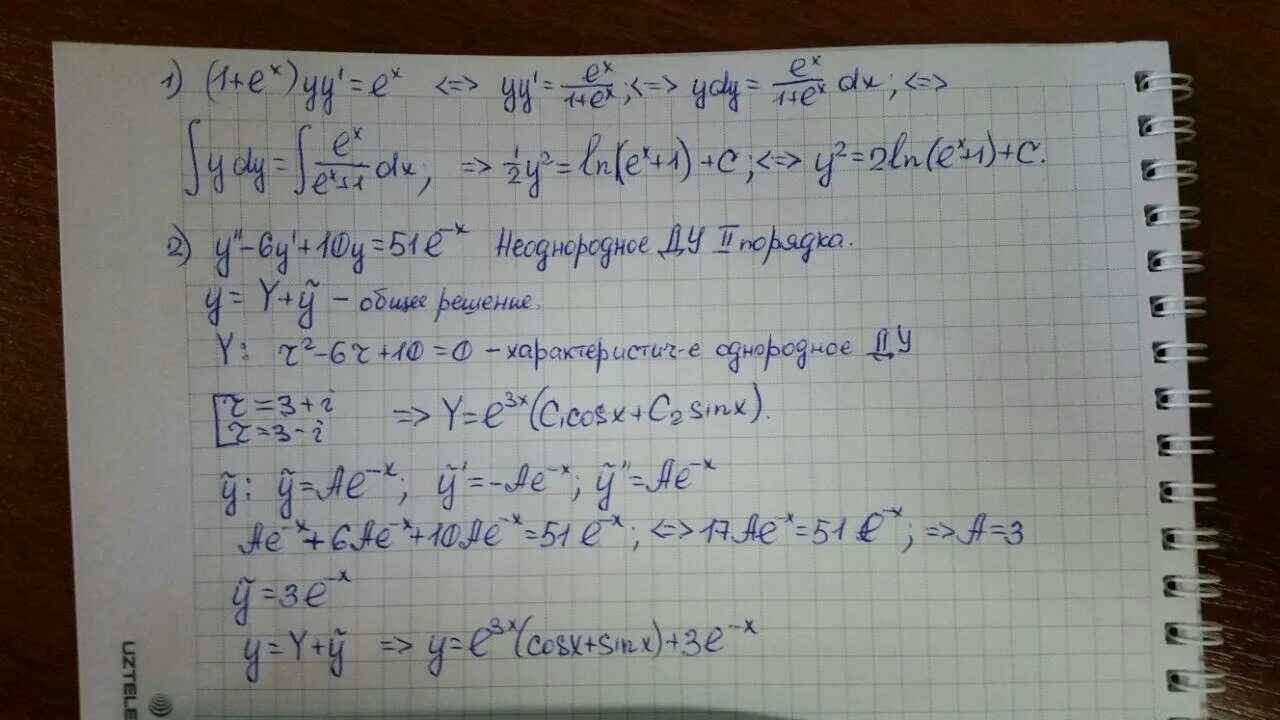 1) (1+e^x)yy'=e^x <=> yy'=e^x/(1+e^x); <=> ydy=e^x/(1+e^x) dx; <=>
∫ydy=∫e^x/(e^x+1) dx; => 1/2 y²=ln(e^x+1)+C; <=> y²=2ln(e^x+1)+C.
2) y''-6y'+10y=51e^-x Неоднородное ДУ II порядка.
y=Y+ỹ – общее решение.
Y: r²-6r+10=0 – характеристич-е однородное ДУ
[r=3+i
r=3-i => Y=e^3x(C₁cosx+C₂sinx).
ỹ: ỹ=Ae^-x; ỹ'=-Ae^-x; ỹ''=Ae^-x
Ae^-x+6Ae^-x+10Ae^-x=51e^-x; <=> 17Ae^-x=51e^-x; => A=3
ỹ=3e^-x
y=Y+ỹ => y=e^3x(cosx+sinx)+3e^-x
UZTELE